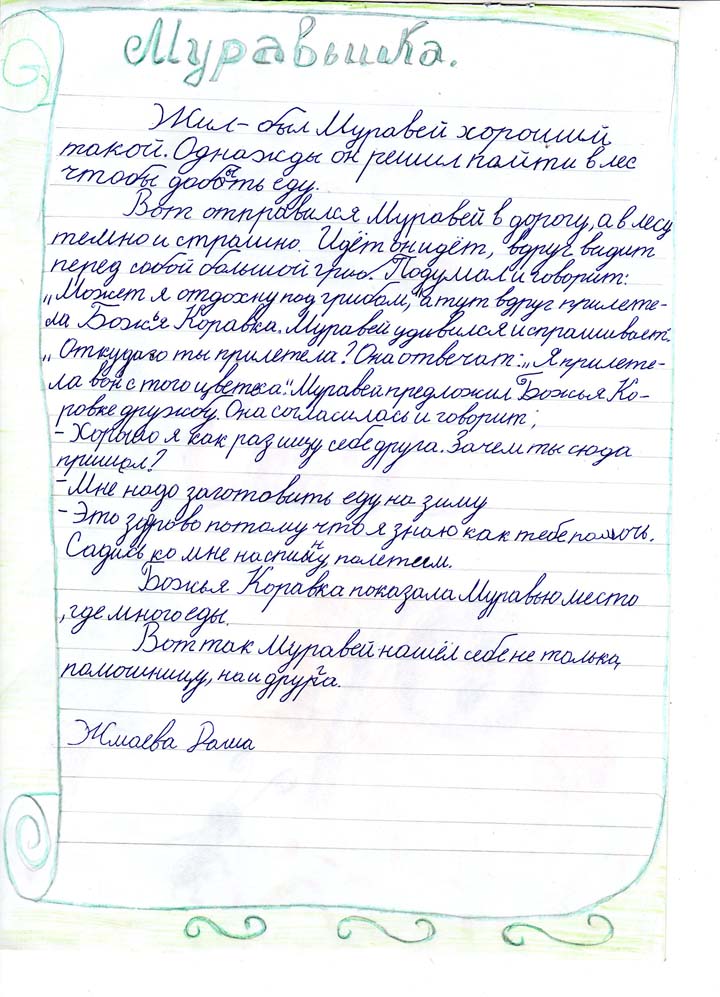 Муравьишка.
Жил-был Муравей хороший
такой. Однажды он решил пайти в лес
чтобы добыть еду.
Вот отправился Муравей в дорогу, а в лесу
темно и страшно. Идёт он идёт, вдруг видит
перед собой большой гриб. Подумал и говорит:
„Может я отдохну под грибом," а тут вдруг прилете-
ла Божья Коравка. Муравей удивился и спрашивает:
„Откудаго ты прилетела? Она отвечат: „Я прилете-
ла вон с того цветка." Муравей предложил Божья Ко-
ровке дружбу. Она согласилась и говорит;
- Хорошо я как раз ищу себе друга. Зачем ты сюда
пришёл?
- Мне надо заготовить еду на зиму
- Это здрово потому что я знаю как тебе помочь.
Садись ко мне на спину полетели.
Божья Коравка показала Муравью место
, где много еды.
Вот так Муравей нашёл себе не только
памошницу, на и друга.
Жмаева Даша